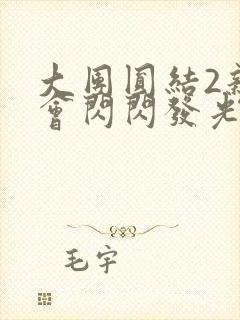 大團圓結2
會閃閃發光
毛宇